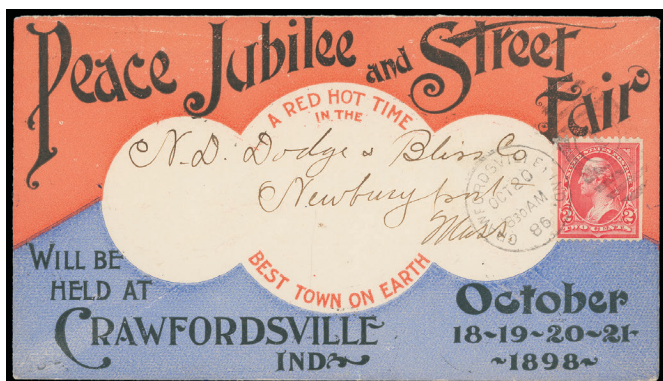 Peace Jubilee and Street Fair
A RED HOT TIME
IN THE
N. D. Dodge & Bliss Co
Newburyport
Mass
CRAWFORDSVILLE, IND.
OCT 20
830 AM
TWO CENTS
2 2
BEST TOWN ON EARTH
WILL BE
HELD AT
CRAWFORDSVILLE
IND
October
18~19~20~21
~1898~